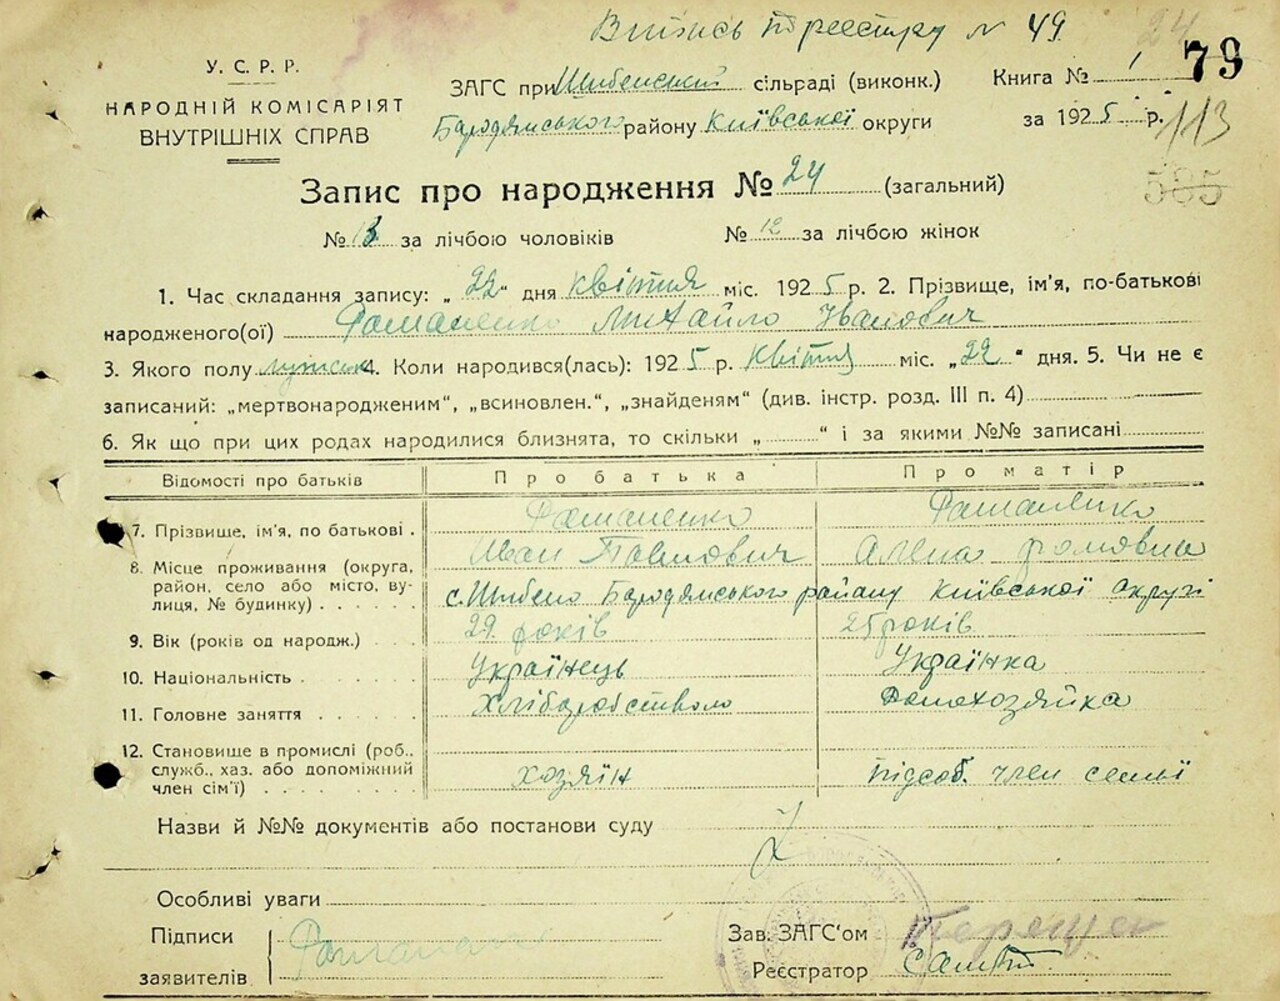 Витись по реєстру № 49
24
79
У. С. Р. Р.
НАРОДНІЙ КОМІСАРІЯТ
ВНУТРІШНІХ СПРАВ
ЗАГС при Шибенський сільраді (виконк.)
Бародянського району Київської округи
Книга № 1
за 1925 р.
113
585
Запис про народження № 24 (загальний)
№ 13 за лічбою чоловіків № 12 за лічбою жінок
1. Час складання запису: „22“ дня квітня міс. 1925 р. 2. Прізвище, ім'я, по-батькові
народженого(ої) Романенко Михайло Іванович
3. Якого полу 4. Коли народився(лась): 1925 р. Квітня міс. „22“ дня. 5. Чи не є
записаний: „мертвонародженим“, „всиновлен.“, „знайденям“ (див. інстр. розд. III п. 4)
6. Як що при цих родах народилися близнята, то скільки „ “ і за якими №№ записані
Відомості про батьків Про батька Про матір
7. Прізвище, ім'я, по батькові . Романенко Романенко
Иван Павлович Алена Фомовна
8. Місце проживання (округа,
район, село або місто, ву-
лиця, № будинку) . . . . . . с. Шибено Бародянського району Київської округі
9. Вік (років од народж.) . . . 29 років 25 років
10. Національність . . . . . . . Українець Українка
11. Головне заняття . . . . . . Хліборобством Домохозяйка
12. Становище в промислі (роб.,
служб., хаз. або допоміжний
член сім'ї) . . . . . . . . . хозяїн підсоб. член семьї
Назви й №№ документів або постанови суду
Особливі уваги
Підписи
заявителів
Зав. ЗАГС'ом
Реєстратор